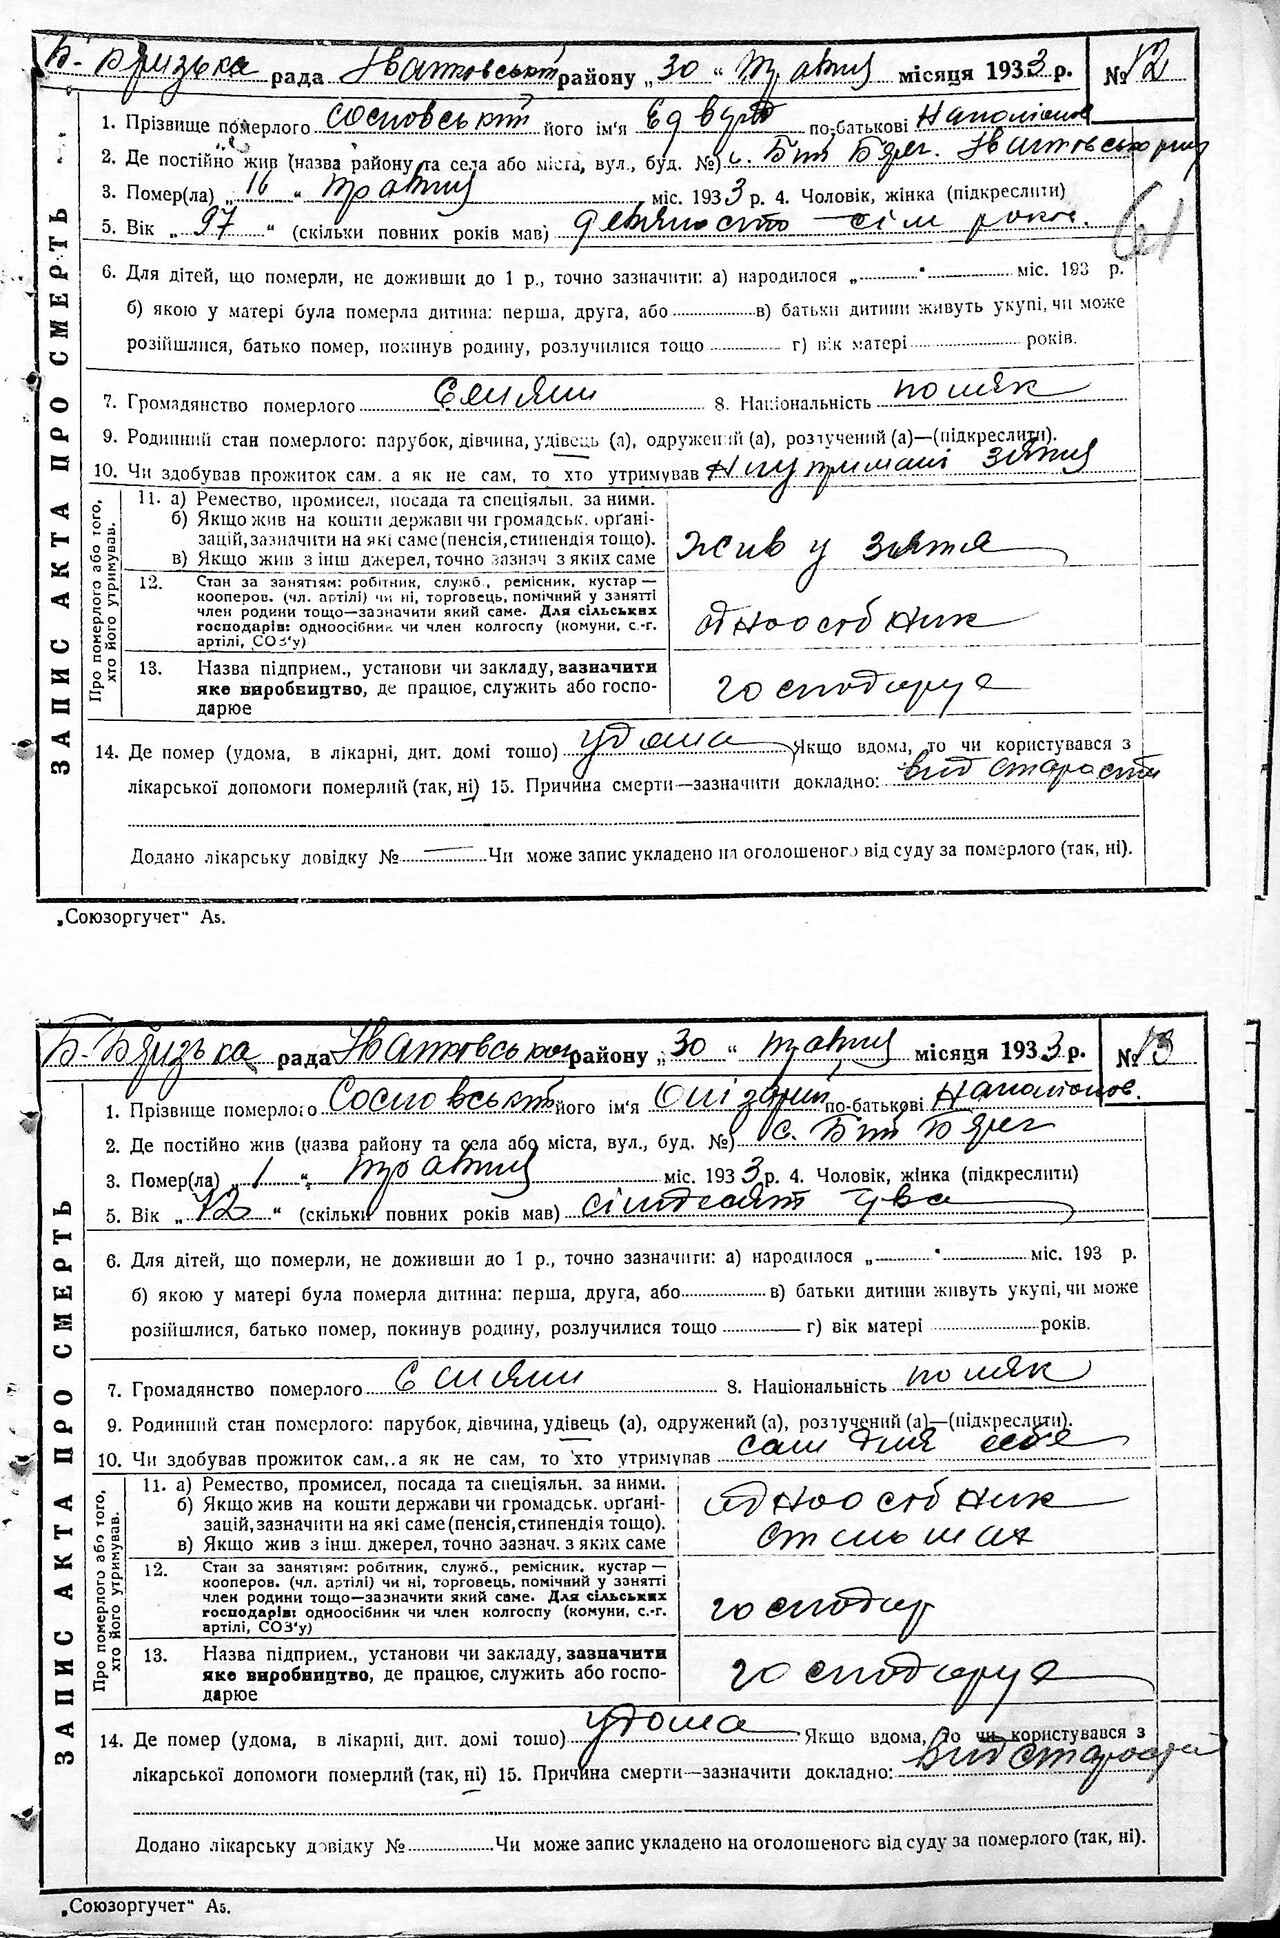 Б-Бризька рада Іватовський району „30“ травня місяця 1933 р. № 12
1. Прізвище померлого Сосновський його ім'я Едвард по-батькові Наполіонов
2. Де постійно жив (назва району та села або міста, вул., буд. №) с. Біл. Берег.
3. Помер(ла) „16“ травня міс. 1933 р. 4. Чоловік, жінка (підкреслити)
61
5. Вік „97“ (скільки повних років мав) девяносто сім років.
6. Для дітей, що померли, не доживши до 1 р., точно зазначити: а) народилося „ “ міс. 193 р.
б) якою у матері була померла дитина: перша, друга, або в) батьки дитини живуть укупі, чи може
розійшлися, батько помер, покинув родину, розлучилися тощо г) вік матері років.
7. Громадянство померлого 8. Національність поляк
9. Родинний стан померлого: парубок, дівчина, удівець (а), одружений (а), розлучений (а)—(підкреслити).
10. Чи здобував прожиток сам, а як не сам, то хто утримував на утриманні зятя
ЗАПИС АКТА ПРО СМЕРТЬ
Про померлого або того, хто його утримував.
11. а) Ремество, промисел, посада та спеціяльн. за ними.
б) Якщо жив на кошти держави чи громадськ. органі-
зацій, зазначити на які саме (пенсія, стипендія тощо).
в) Якщо жив з інш джерел, точно зазнач з яких саме
жив у зятя
12. Стан за занятіям: робітник, служб., ремісник, кустар—
кооперов. (чл. артілі) чи ні, торговець, помічний у занятті
член родини тощо—зазначити який саме. Для сільських
господарів: одноосібник чи член колгоспу (комуни, с.-г.
артілі, СОЗ'у)
одноосібник
13. Назва підприєм., установи чи закладу, зазначити
яке виробництво, де працює, служить або госпо-
дарює
господарує
14. Де помер (удома, в лікарні, дит. домі тощо) удома Якщо вдома, то чи користувався з
лікарської допомоги померлий (так, ні) 15. Причина смерти—зазначити докладно: від старости
Додано лікарську довідку № — Чи може запис укладено на оголошеного від суду за померлого (так, ні).
„Союзоргучет“ А5.
Б-Бризька рада району „30“ травня місяця 1933 р. № 13
1. Прізвище померлого Сосновський його ім'я по-батькові Наполіонов.
2. Де постійно жив (назва району та села або міста, вул., буд. №) с. Біл. Берег
3. Помер(ла) „1“ травня міс. 1933 р. 4. Чоловік, жінка (підкреслити)
5. Вік „72“ (скільки повних років мав) сімдесят два
6. Для дітей, що померли, не доживши до 1 р., точно зазначити: а) народилося „ “ міс. 193 р.
б) якою у матері була померла дитина: перша, друга, або в) батьки дитини живуть укупі, чи може
розійшлися, батько помер, покинув родину, розлучилися тощо г) вік матері років.
7. Громадянство померлого 8. Національність поляк
9. Родинний стан померлого: парубок, дівчина, удівець (а), одружений (а), розлучений (а)—(підкреслити).
10. Чи здобував прожиток сам, а як не сам, то хто утримував сам для себе
ЗАПИС АКТА ПРО СМЕРТЬ
Про померлого або того, хто його утримував.
11. а) Ремество, промисел, посада та спеціяльн. за ними.
б) Якщо жив на кошти держави чи громадськ. органі-
зацій, зазначити на які саме (пенсія, стипендія тощо).
в) Якщо жив з інш. джерел, точно зазнач. з яких саме
одноосібник
12. Стан за занятіям: робітник, служб., ремісник, кустар—
кооперов. (чл. артілі) чи ні, торговець, помічний у занятті
член родини тощо—зазначити який саме. Для сільських
господарів: одноосібник чи член колгоспу (комуни, с.-г.
артілі, СОЗ'у)
господар
13. Назва підприєм., установи чи закладу, зазначити
яке виробництво, де працює, служить або госпо-
дарює
господарує
14. Де помер (удома, в лікарні, дит. домі тощо) удома Якщо вдома, то чи користувався з
лікарської допомоги померлий (так, ні) 15. Причина смерти—зазначити докладно: від старости
Додано лікарську довідку № Чи може запис укладено на оголошеного від суду за померлого (так, ні).
„Союзоргучет“ А5.